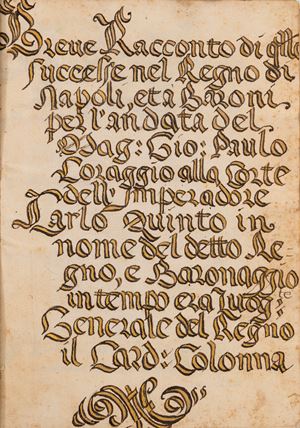 Breve Racconto di q̃llo
successe nel Regno di
Napoli, et à Baroni
per l'andata del
Mag: Gio: Paulo
Coraggio alla Corte
dell'Imperadore
Carlo Quinto in
nome del detto Re
gno, e Baronaggio
in tempo era
Generale del Regno
il Card: Colonna